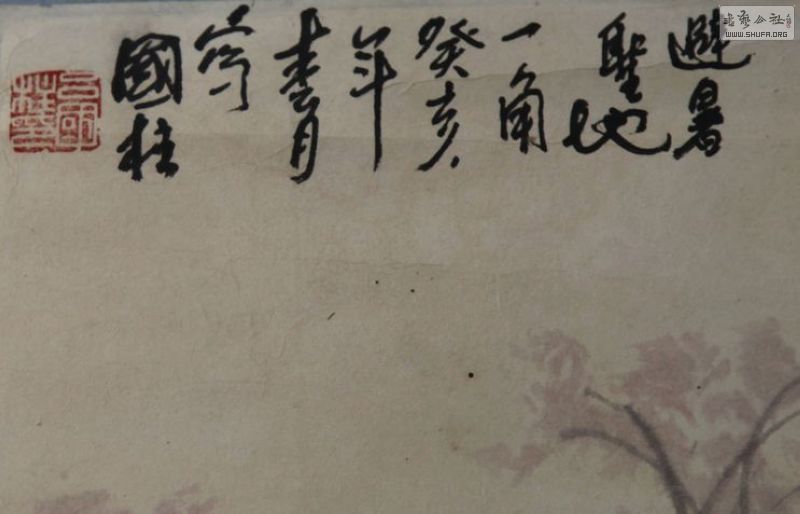 避暑
聖地
一角
癸亥
年
春月
寫
國柱
書艺公社
WWW.SHUFA.ORG